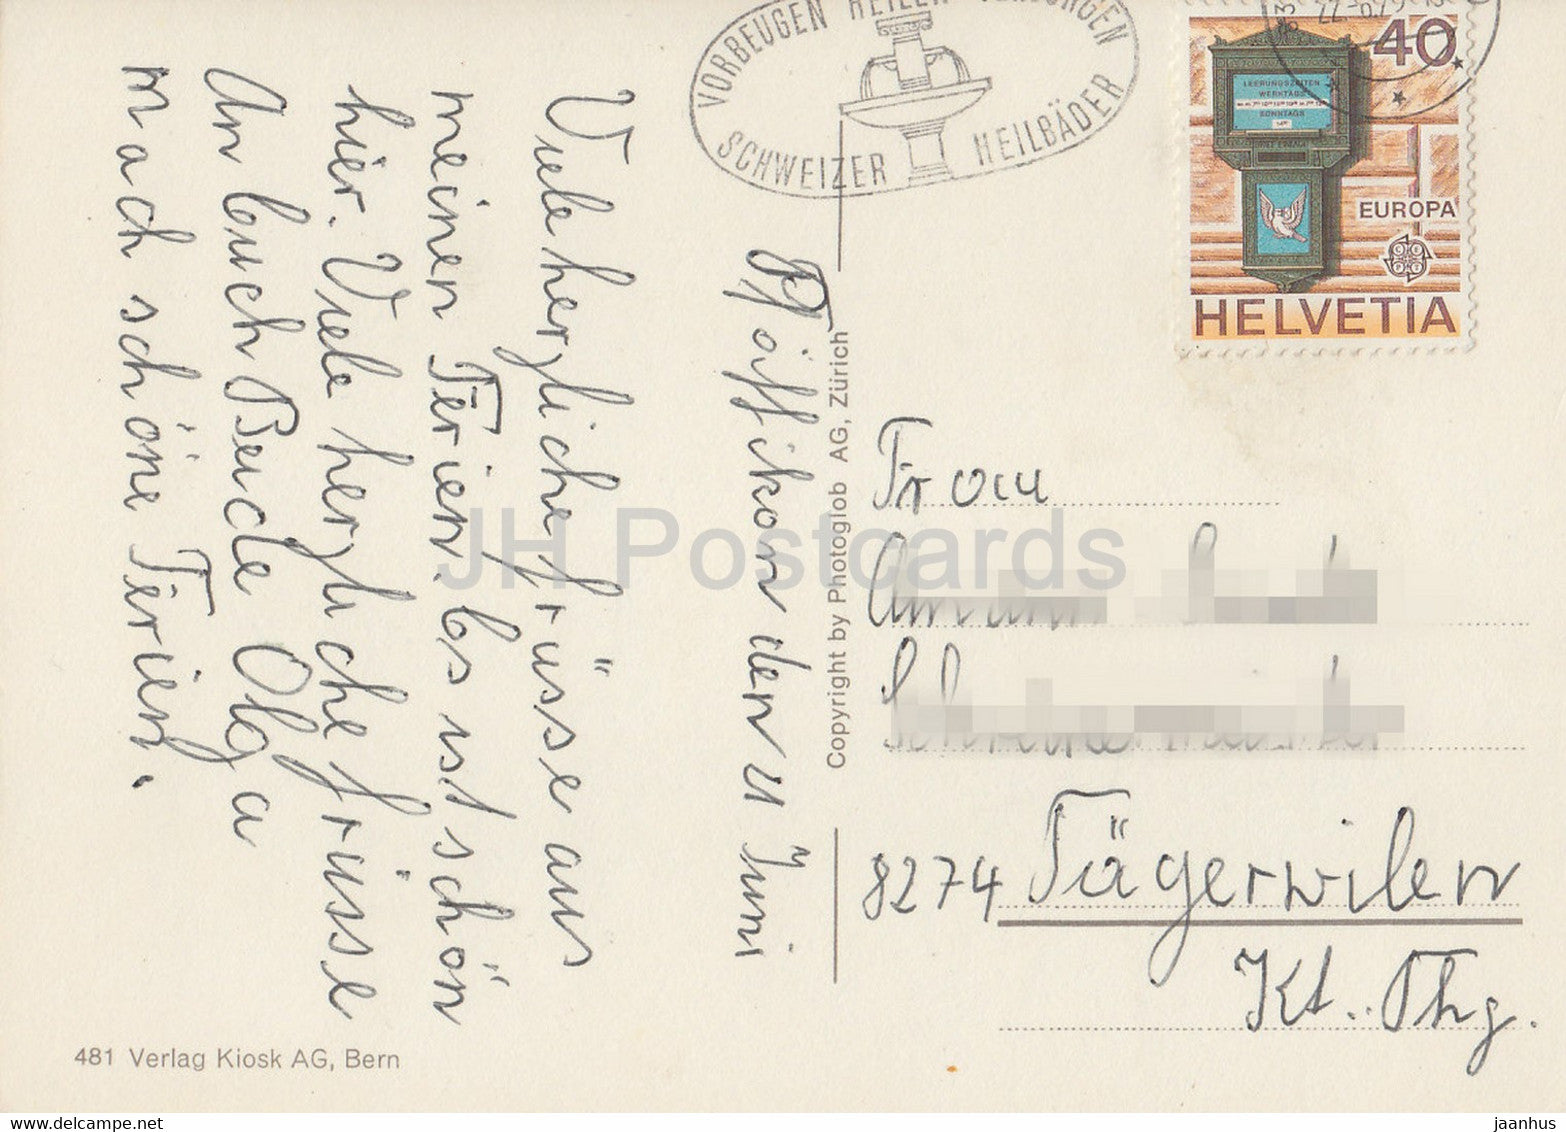 VORBEUGEN HEILEN VORSORGEN
SCHWEIZER HEILBÄDER
22.-6.79
40
LEERUNGSZEITEN
WERKTAGS
SONNTAGS
EUROPA
HELVETIA
Pfäffikon den 21 Juni
Viele herzliche Grüsse aus
meinen Ferien. Es ist schön
hier. Viele herzliche Grüsse
An Euch Beide Olga
mach schöne Ferien.
Copyright by Photoglob AG, Zürich
Frau
8274 Tägerwilen
Kt. Thg.
481 Verlag Kiosk AG, Bern
JH Postcards
jaanhus